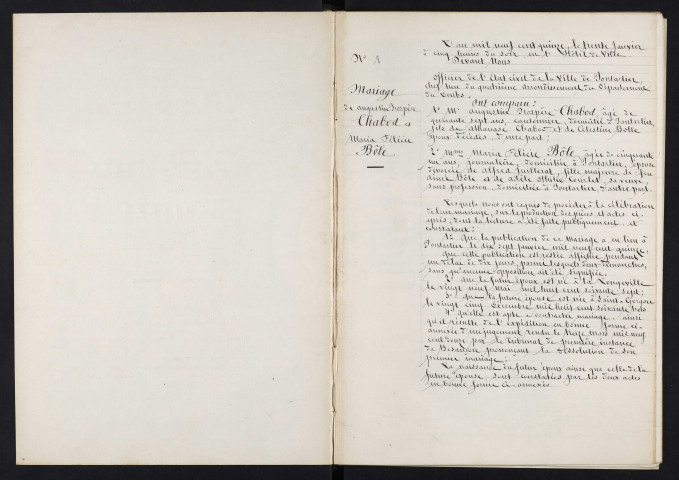 N° 1
Mariage
de augustin Prospère
Chabod et
Maria Félicie
Bôle
L'an mil neuf cent quinze, le trente Janvier
à cinq heures du soir en l'Hôtel de Ville
Devant Nous
Officier de l'Etat civil de la Ville de Pontarlier,
chef-lieu du quatrième arrondissement du Département
du Doubs.
Ont comparu :
1° Mr augustin Prospère Chabod, âgé de
quarante sept ans, cantonnier, domicilié à Pontarlier,
fils de athanase Chabod et de Célestine Bolle
époux décédés, d'une part ;
2° Mme Maria Félicie Bôle, âgée de cinquante
un ans, journalière, domiciliée à Pontarlier, épouse
divorcée de alfred Juillerat, fille majeure de feu
aimé Bôle et de adèle Courlet, sa veuve
sans profession, domiciliée à Pontarlier, d'autre part.
Lesquels nous ont requis de procéder à la célébration
de leur mariage, sur la production des pièces et actes ci-
après, dont la lecture a été faite publiquement, et
constatant :
1° que la publication de ce mariage a eu lieu à
Pontarlier le dix sept janvier mil neuf cent quinze,
que cette publication est restée affichée pendant
un délai de dix jours, parmi lesquels deux dimanches,
sans qu'aucune opposition ait été signifiée ;
2° que le futur époux est né à la Longeville
le vingt neuf mai mil huit cent soixante sept ;
3° que la future épouse est née à Saint-Gorgon
le vingt cinq Décembre mil huit cent soixante trois
4° qu'elle est apte à contracter mariage, ainsi
qu'il résulte de l'expédition en bonne forme ci-
annexée d'un jugement rendu le treize mars mil neuf
cent douze par le Tribunal de première instance
de Besançon prononçant la dissolution de son
premier mariage ;
La naissance du futur époux ainsi que celle de la
future épouse sont constatées par les deux actes
en bonne forme ci-annexés.